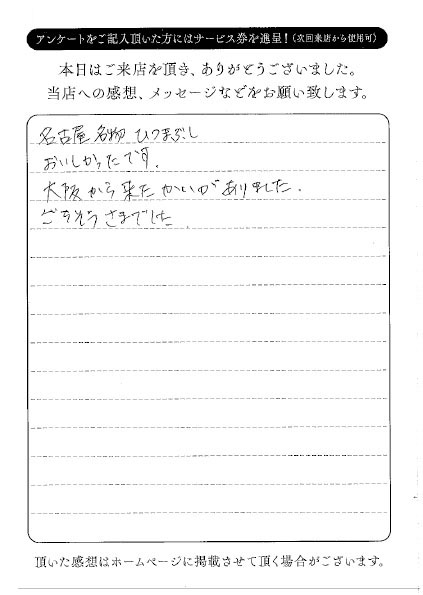 アンケートをご記入頂いた方にはサービス券を進呈!(次回来店から使用可)
本日はご来店を頂き、ありがとうございました。
当店への感想、メッセージなどをお願い致します。
名古屋名物 ひつまぶし
おいしかったです.
大阪から来たかいがありました.
ごちそうさまでした.
頂いた感想はホームページに掲載させて頂く場合がございます。